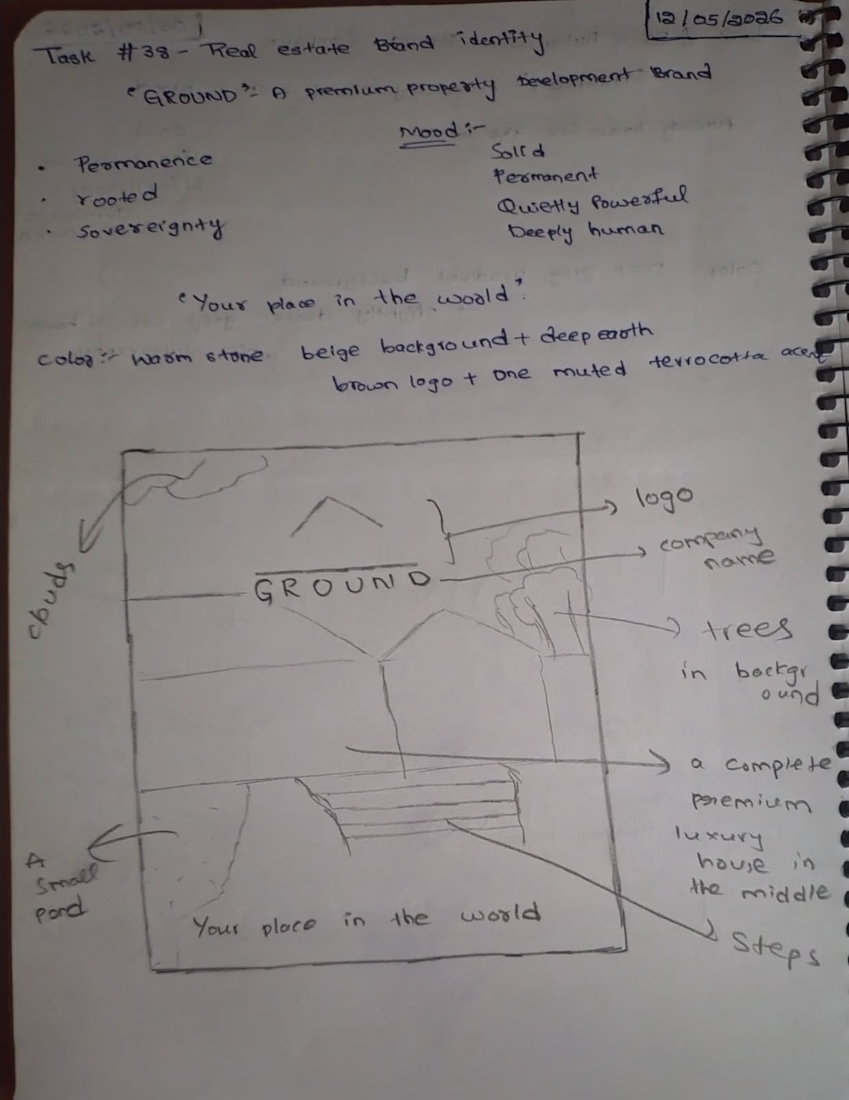 12/05/2026
Task #38 - Real estate Brand identity
"GROUND":- A premium property Development Brand
Mood:-
• Permanence
• rooted
• Sovereignty
Solid
Permanent
Quietly Powerful
Deeply human
"Your place in the world".
Color:- warm stone beige background + deep earth
brown logo + one muted terrocotta acent
logo
company
name
clouds
GROUND
trees
in backgr
ound
a complete
premium
luxury
house in
the middle
A
small
pond
Your place in the world
Steps